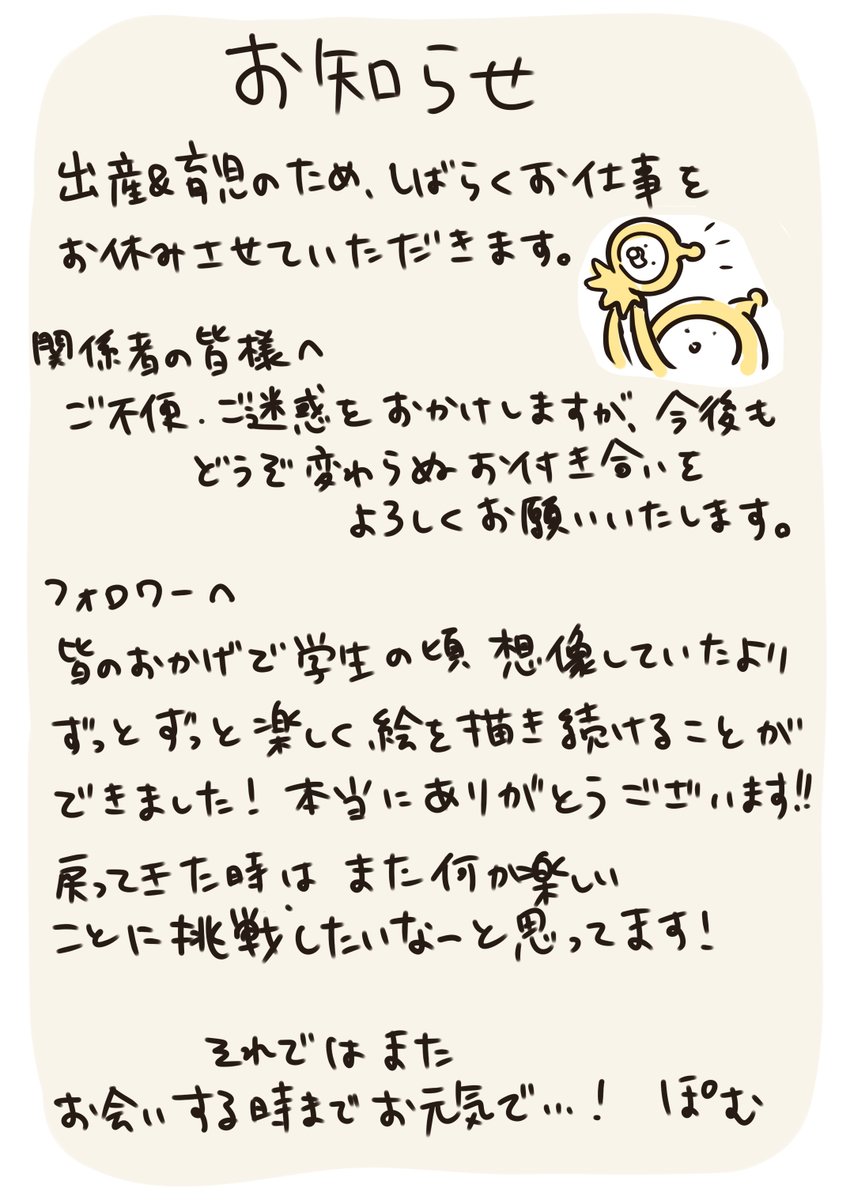 お知らせ
出産&育児のため、しばらくお仕事を
お休みさせていただきます。
関係者の皆様へ
ご不便・ご迷惑をおかけしますが、今後も
どうぞ変わらぬお付き合いを
よろしくお願いいたします。
フォロワーへ
皆のおかげで学生の頃 想像していたより
ずっとずっと楽しく絵を描き続けることが
できました! 本当にありがとうございます!!
戻ってきた時は また何か楽しい
ことに挑戦したいなーと思ってます!
それではまた
お会いする時までお元気で…! ぽむ